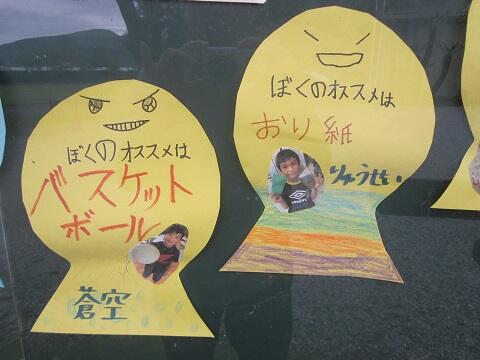 ぼくのオススメは
バスケット
ボール
蒼空
ぼくのオススメは
おり紙
りゅうせい
umbro